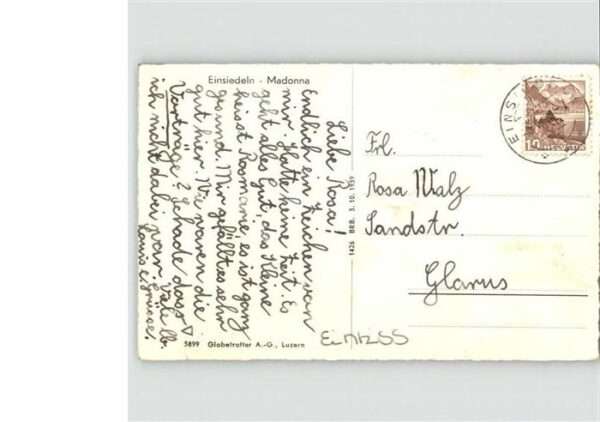 Einsiedeln - Madonna
Liebe Rosa!
Endlich ein Zeichen von
mir. Hatte keine Zeit. Es
geht alles Gut, das Kleine
heisst Rosmarie, es ist ganz
gesund. Mir gefällt es sehr
gut hier. Wie waren die
Vorträge? Schade dass
ich nicht dabei war. Viele lb.
Grüsse.
5899 Globetrotter A.-G., Luzern
1426 BRB. 3. 10. 1939
EINS
10
HELVETIA
Frl.
Rosa Walz
Sandstr.
Glarus